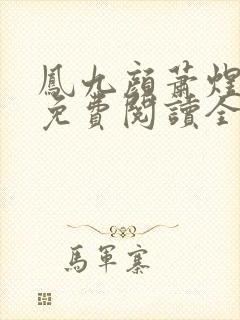 鳳九顔蕭煜
免費閱讀全
馬軍寨